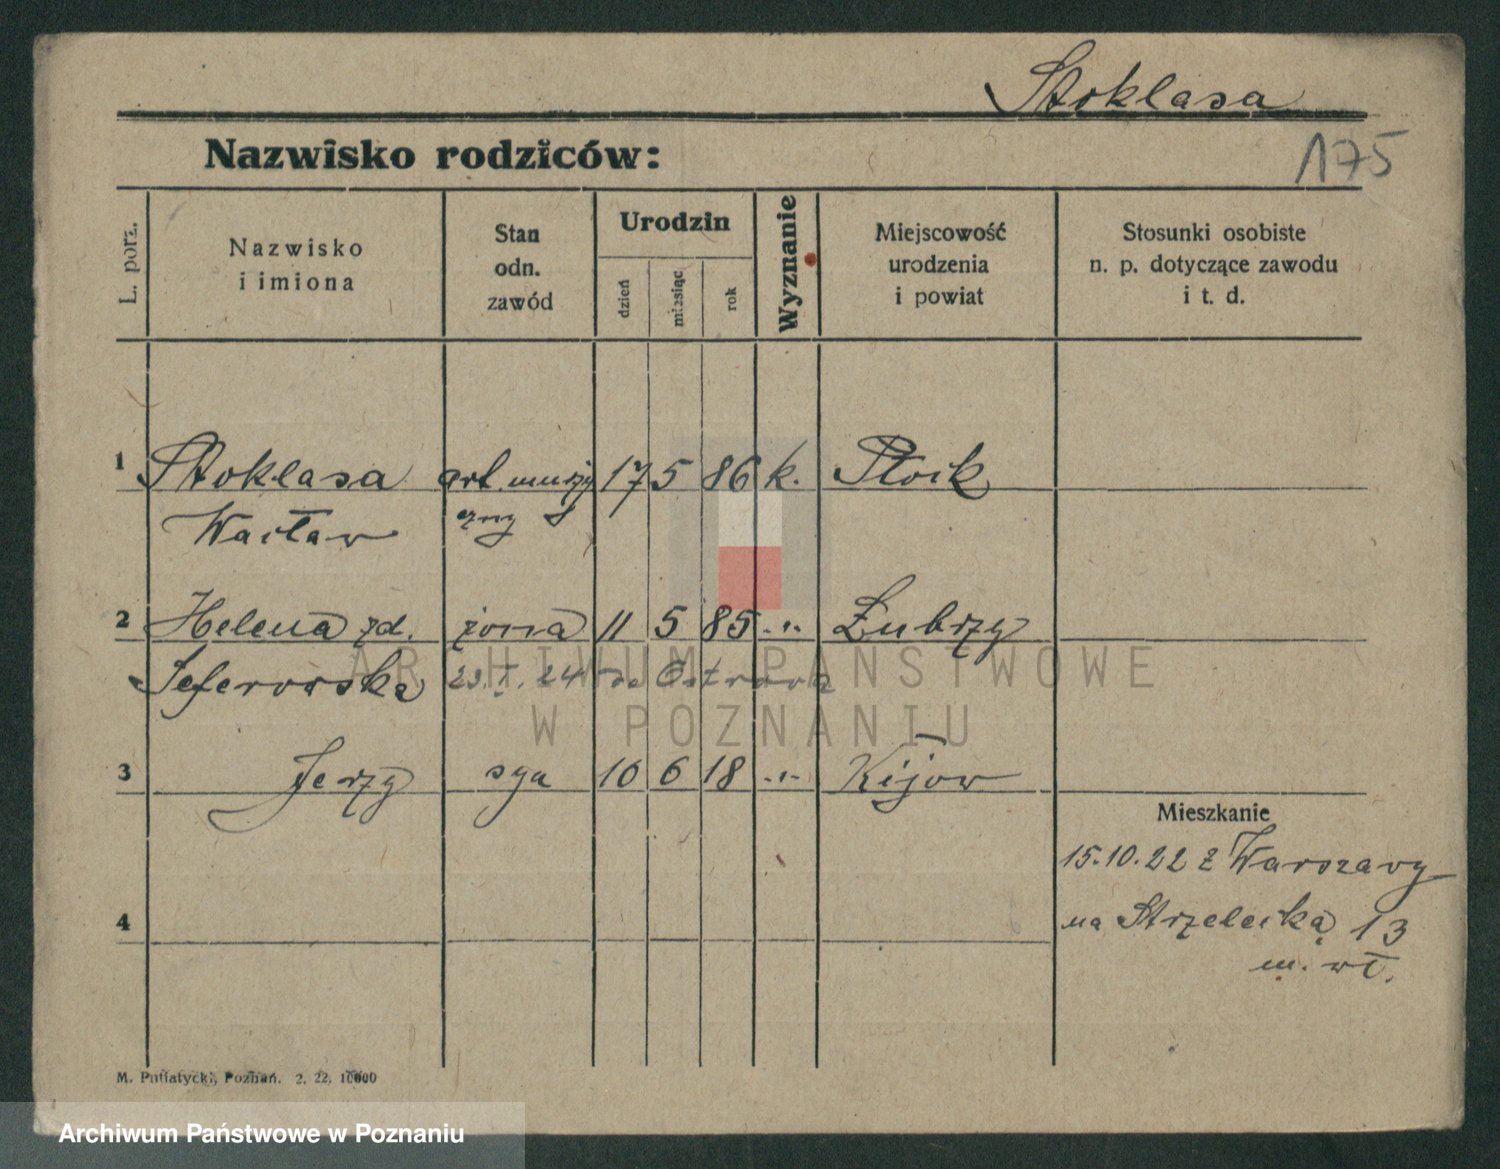 Stoklasa
Nazwisko rodziców:
175
L. porz.
Nazwisko
i imiona
Stan
odn.
zawód
Urodzin
dzień
miesiąc
rok
Wyznanie
Miejscowość
urodzenia
i powiat
Stosunki osobiste
n. p. dotyczące zawodu
i t. d.
1 Stoklasa art. muzy 17 5 86 k. Płock
Wacław czny
2 Helena zd. żona 11 5 85 -"- Żubrzy
23.I.24 do Ostrowa
3 Jerzy syn 10 6 18 -"- Kijow
Mieszkanie
15.10.22 z Warszawy
4
na Strzelecką 13
m. wł.
ARCHIWUM PAŃSTWOWE
W POZNANIU
M. Putiatycki, Poznań. 2. 22. 10000
Archiwum Państwowe w Poznaniu